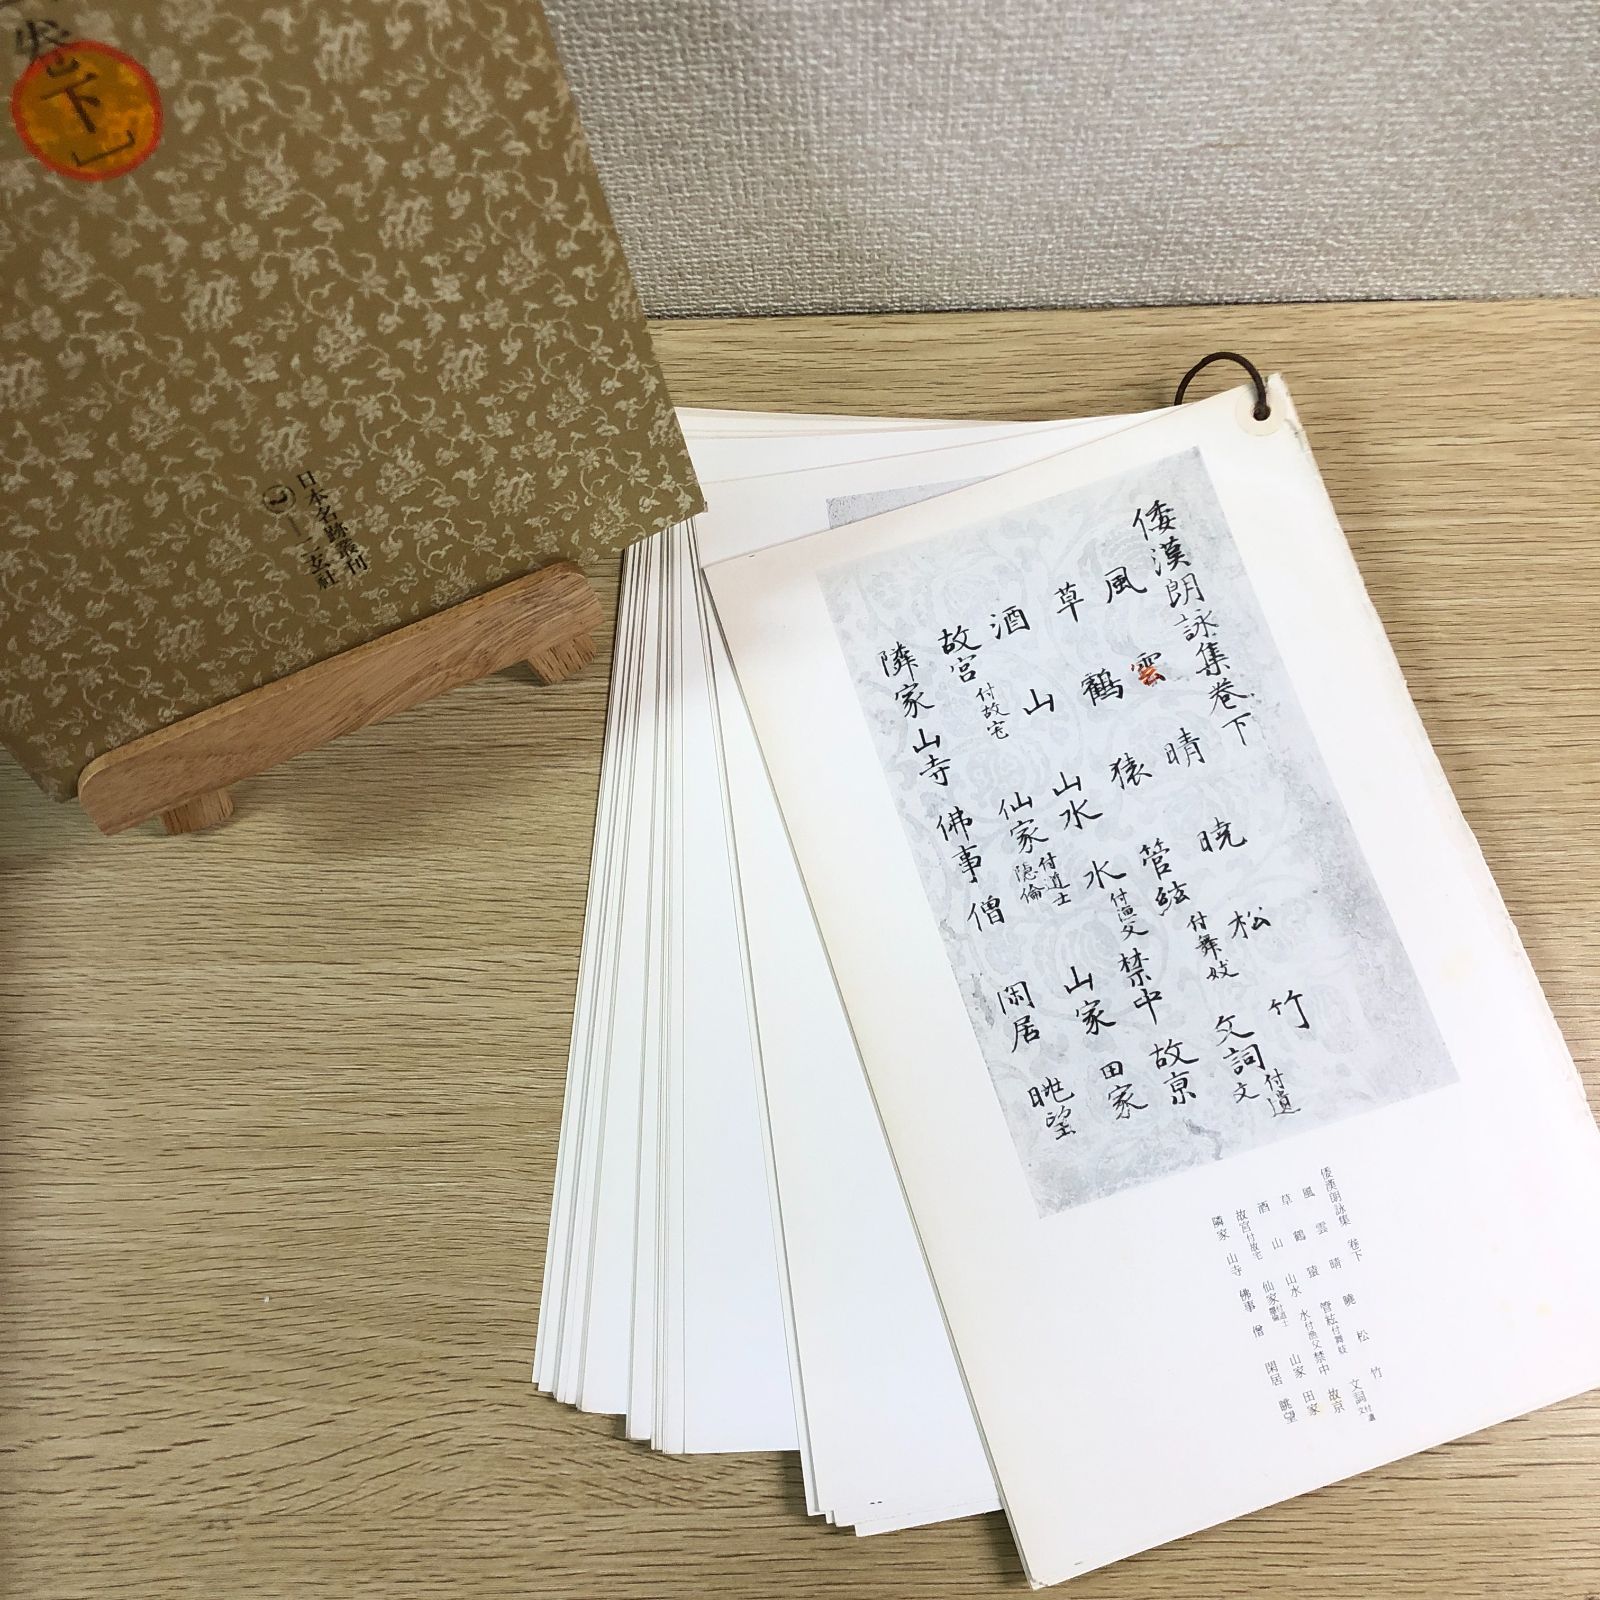 卷下」
日本名跡叢刊
二玄社
倭漢朗詠集卷下
風 雲 晴 暁 松 竹
草 鶴 猿 管絃付舞妓 文詞付遺文
酒 山 山水 水付漁父 禁中 故京
故宮付故宅 仙家付道士隠倫 山家 田家
隣家 山寺 佛事 僧 閑居 眺望
倭漢朗詠集 卷下
風 雲 晴 曉 松 竹
草 鶴 猿 管絃付舞妓 文詞付遺文
酒 山 山水 水付漁父 禁中 故京
故宮付故宅 仙家付道士隱倫 山家 田家
隣家 山寺 佛事 僧 閑居 眺望